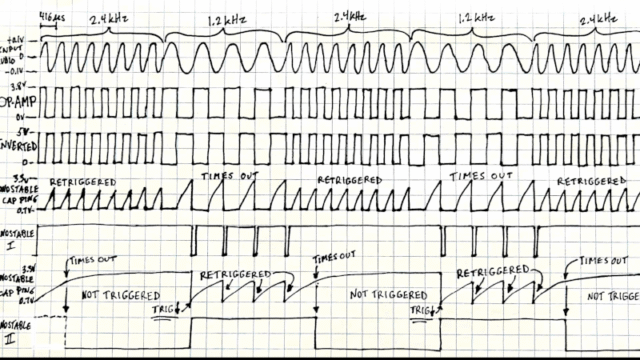 416µs 2.4 kHz 1.2 kHz 2.4 kHz 1.2 kHz 2.4 kHz
+0.1V
INPUT 0
-0.1V
3.8V
OP-AMP
0V
5V
INVERTED
0
3.5V RETRIGGERED TIMES OUT RETRIGGERED TIMES OUT RETRIGGERED
NOSTABLE
CAP PING
0.7V
NOSTABLE
I
TIMES OUT RETRIGGERED TIMES OUT RETRIGGERED TIMES OUT
3.5V
NOSTABLE
CAP PING NOT TRIGGERED NOT TRIGGERED NOT TRIG
0.7V TRIG TRIG
NOSTABLE
II